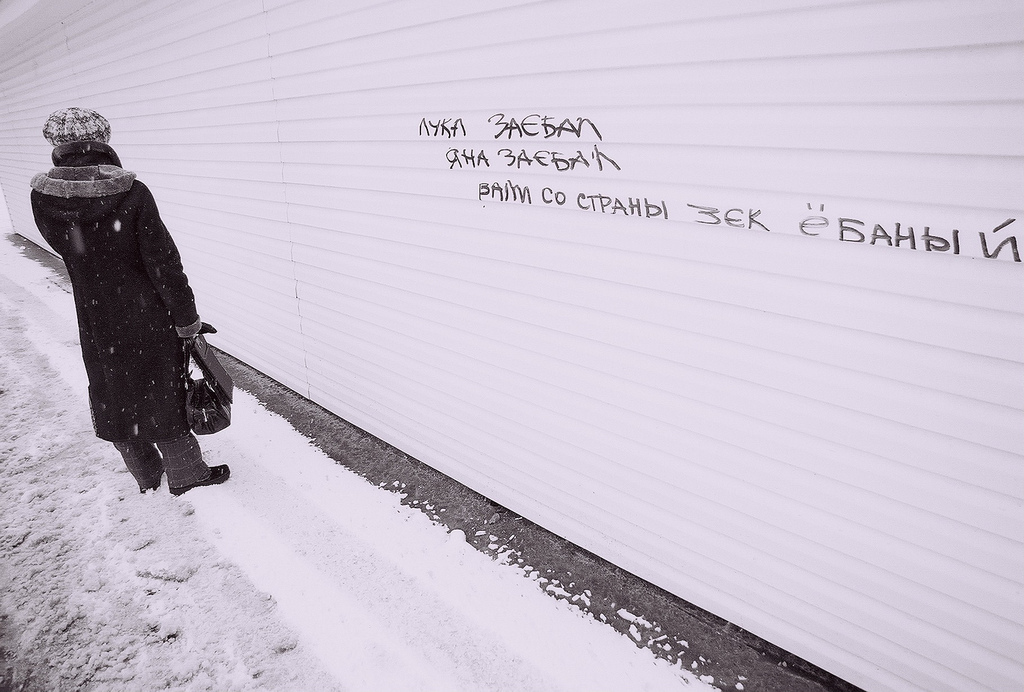 ЛУКА ЗАЄБАЛ
ЯНА ЗАЄБАЛ
ВАЛИ СО СТРАНЫ ЗЄК ЁБАНЫЙ